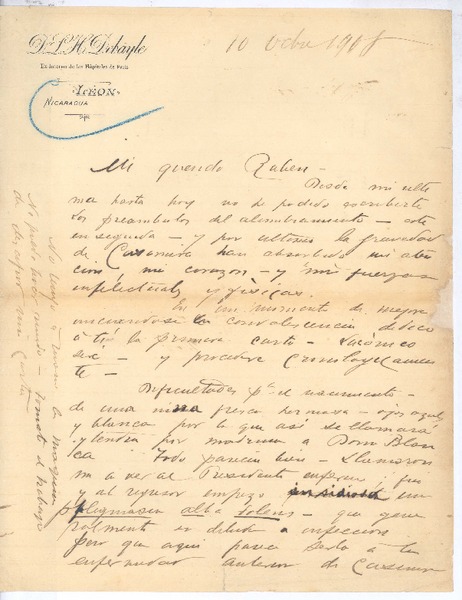 Dr. L. H. Debayle
Ex interno de los Hôpitales de Paris
LEON
NICARAGUA
10 Octbre 1908
Mi querido Ruben -
Desde mi ulti
ma hasta hoy no he podido escribirte
Los preambulos del alumbramiento - este
en seguida - y por ultimo la gravedad
de Casimira han absorbido mi aten
cion mi corazon - y mis fuerzas
intelectuales y físicas.
En un momento de mejor
convalescencia dedico
á ti la primera carta - Lacónico
seré - y procederé cronologicamen
te -
Dificultades pa el nacimiento -
de una niña fresca hermosa - ojos azul
y blanca por lo que así se llamará
y tendrá por madrina a Doña Blan
ca Todo parecía bien - Llamaron
me a ver al Presidente enfermo, fui
y al regresar empezó una
phlegmasia alba dolens - que gene
ralmente es debida a infeccion
pero que aqui parece serlo á la
enfermedad anterior de Casimira
No tengo á mano la maquina
No puedo por
de descifrar mi carta